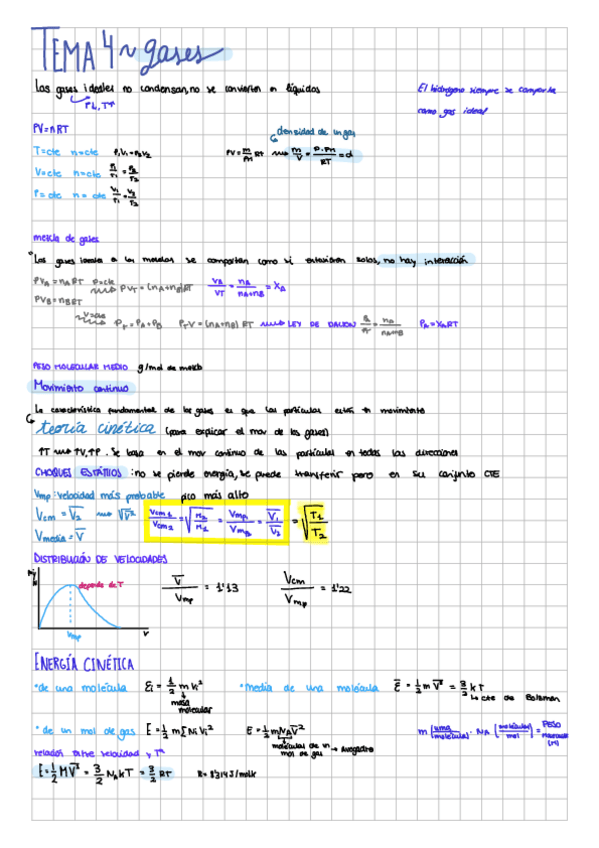 TEMA 4 ~ gases
Los gases ideales no condensan, no se convierten en líquidos
↓P, T↑
El hidrógeno siempre se comporta
como gas ideal
PV=nRT
densidad de un gas
T=cte n=cte P₁V₁=P₂V₂
PV = m/Pm RT ⟿ m/V = P·Pm/RT = d
V=cte n=cte P₁/T₁ = P₂/T₂
P=cte n=cte V₁/T₁ = V₂/T₂
mezcla de gases
no hay interacción
PV_A = n_A RT P=cte ⟿ PV_T = (n_A+n_B)RT V_A/V_T = n_A/n_A+n_B = X_A
PV_B = n_B RT
V=cte ⟿ P_T = P_A+P_B P_T V = (n_A+n_B) RT ⟿ LEY DE DALTON P_A/P_T = n_A/n_A+n_B
PESO MOLECULAR MEDIO g/mol de mezcla
Movimiento continuo
La característica fundamental de los gases es que las partículas están en movimiento
teoría cinética (para explicar el mov de los gases)
↑T ⟿ ↑V, ↑P. Se basa en el mov continuo de las partículas en todas las direcciones
: no se pierde energía, se puede transferir pero en su conjunto CTE
Vmp: velocidad más probable pico más alto
Vcm = √V̄²
Vcm1/Vcm2 = √M₂/M₁ = Vmp1/Vmp2 = V̄₁/V̄₂ = √T₁/T₂
Vmedia = V̄
DISTRIBUCIÓN DE VELOCIDADES
depende de T
V̄/Vmp = 1'13 Vcm/Vmp = 1'22
Vmp
V
ENERGÍA CINÉTICA
•de una molécula Ɛi = 1/2 m Vi²
masa
molecular
•Media de una molécula Ɛ̄ = 1/2 m V̄² = 3/2 kT
cte de
• de un mol de gas E = 1/2 m∑NiVi² E = 1/2 mN_A V̄²
moléculas de un
mol de gas → Avogadro
m [uma/molécula] · N_A [moléculas/mol] = PESO
(M)
relación entre velocidad y Tª
E = 1/2 MV̄² = 3/2 N_A kT = 3/2 RT R=8'314 J/molK